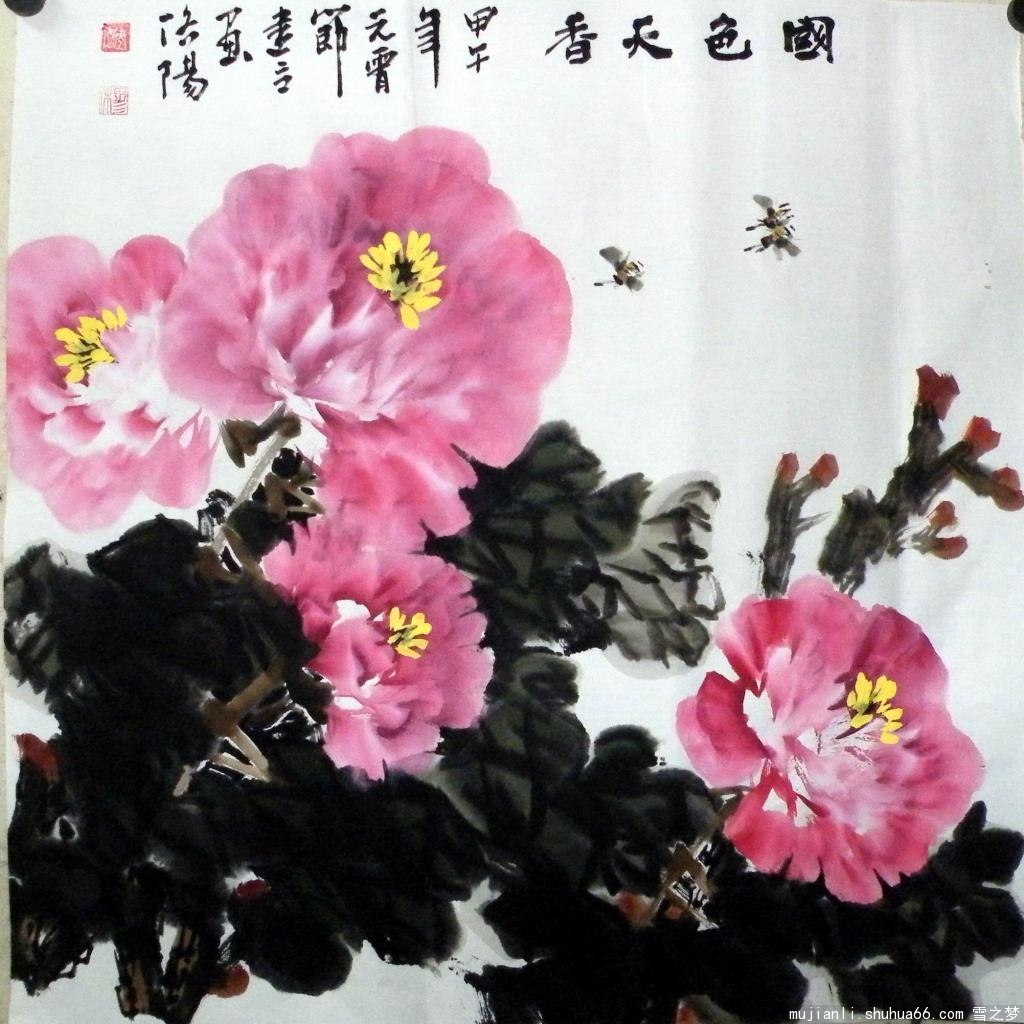 國色天香
甲午
年
元宵
節
建立
画
洛陽
mujianli.shuhua66.com 雪之梦